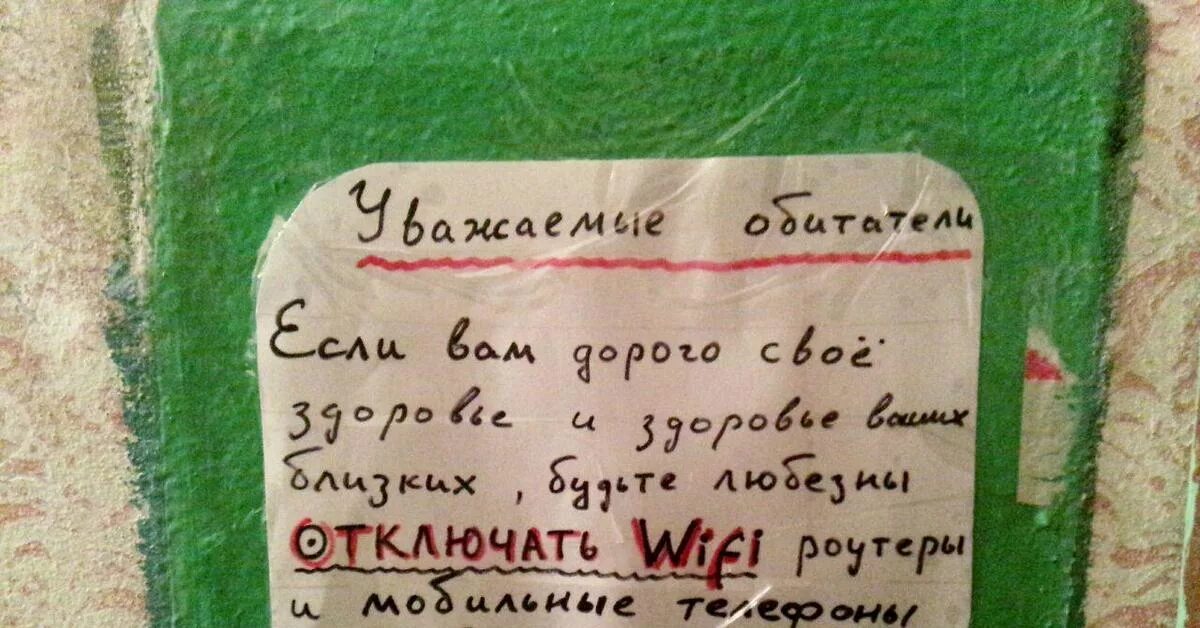 Уважаемые обитатели
Если вам дорого своё
здоровье и здоровье ваших
близких, будьте любезны
ОТКЛЮЧАТЬ Wifi роутеры
и мобильные телефоны